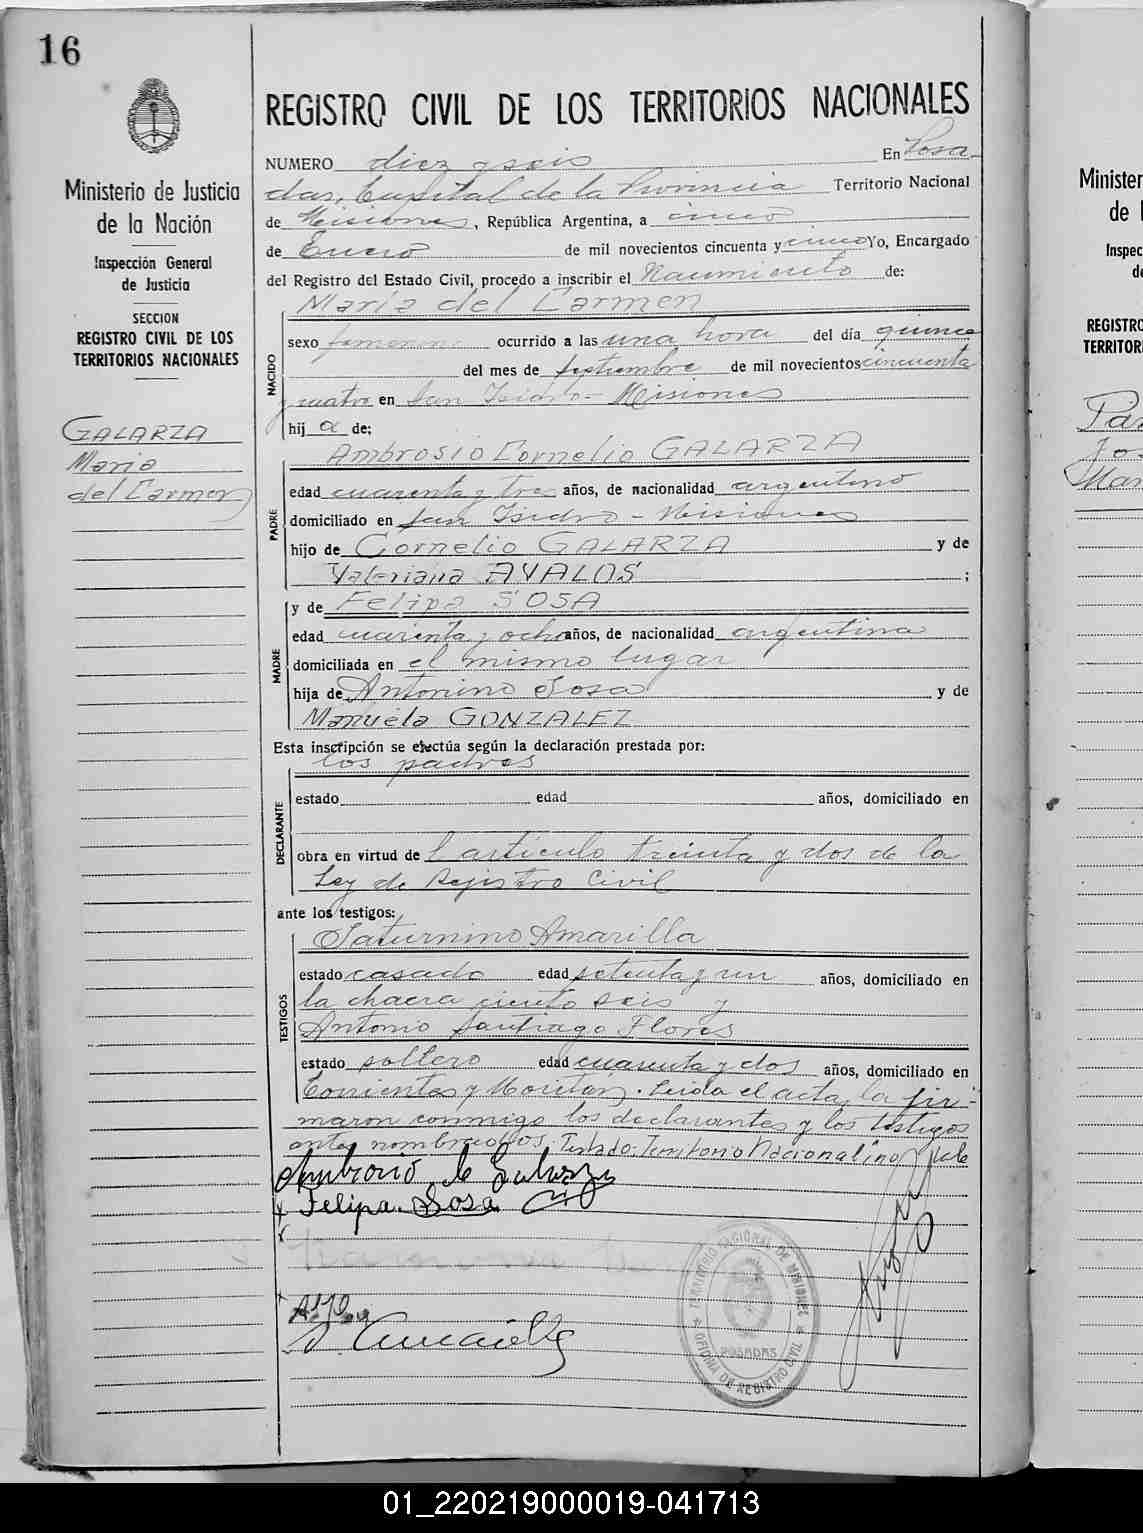 16
Ministerio de Justicia
de la Nación
Inspección General
de Justicia
SECCION
REGISTRO CIVIL DE LOS
TERRITORIOS NACIONALES
GALARZA
Maria
del Carmen
REGISTRO CIVIL DE LOS TERRITORIOS NACIONALES
NUMERO diez y seis En Posa-
das, Capital de la Provincia Territorio Nacional
de Misiones, República Argentina, a cinco
de Enero de mil novecientos cincuenta y cinco Yo, Encargado
del Registro del Estado Civil, procedo a inscribir el Nacimiento de:
María del Carmen
NACIDO
sexo femenino ocurrido a las una hora del día quince
del mes de septiembre de mil novecientos cincuenta
y cuatro en San Isidro - Misiones
hij a de;
Ambrosio Cornelio GALARZA
PADRE
edad cuarenta y tres años, de nacionalidad argentino
domiciliado en San Isidro - Misiones
hijo de Cornelio GALARZA y de
Valeriana AVALOS ;
y de Felipa SOSA
MADRE
edad cuarenta y ocho años, de nacionalidad argentina
domiciliada en el mismo lugar
hija de Antonino Sosa y de
Manuela GONZALEZ
Esta inscripción se efectúa según la declaración prestada por:
los padres
DECLARANTE
estado edad años, domiciliado en
obra en virtud de l artículo treinta y dos de la
Ley de Registro Civil
ante los testigos:
Saturnino Amarilla
TESTIGOS
estado casado edad setenta y un años, domiciliado en
la chacra ciento seis y
Antonio Santiago Flores
estado soltero edad cuarenta y dos años, domiciliado en
Corrientes y Moritan. Leida el acta, la fir-
maron conmigo los declarantes y los testigos
antes nombrados. Testado: Territorio Nacional: no vale
Ambrosio C Galarza
x Felipa Sosa
x
x
S. Amarilla
TERRITORIO NACIONAL DE MISIONES
POSADAS
OFICINA DE REGISTRO CIVIL
Minister
de l
Inspec
de
REGISTRO
TERRITORI
Jos
Mar
01_220219000019-041713